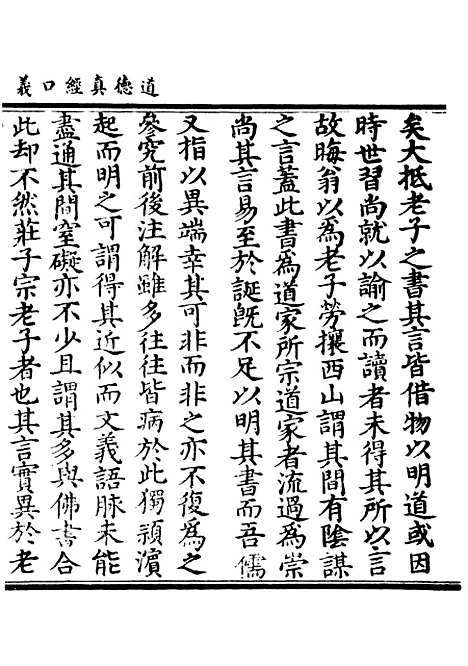 道德真經口義
矣大抵老子之書其言皆借物以明道或因
時世習尚就以諭之而讀者未得其所以言
故晦翁以為老子勞攘西山謂其間有陰謀
之言蓋此書為道家所宗道家者流過為崇
尚其言易至於誕旣不足以明其書而吾儒
又指以異端幸其可非而非之亦不復為之
參究前後注解雖多往往皆病於此獨潁濱
起而明之可謂得其近似而文義語脉未能
盡通其間窒礙亦不少且謂其多與佛書合
此却不然莊子宗老子者也其言實異於老